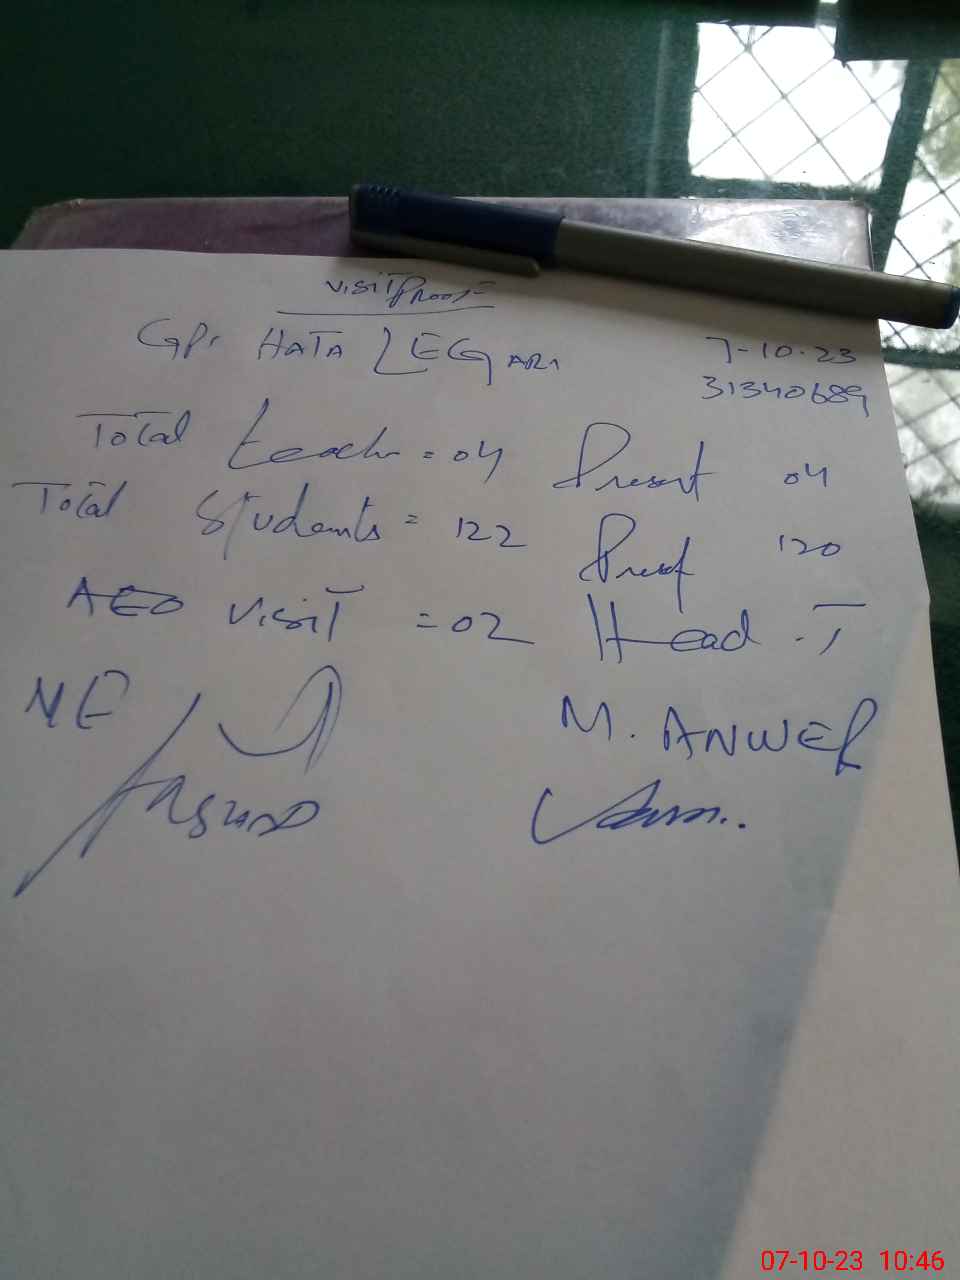 Visit Proof
GPS HATA LEGARI 7-10-23
31340689
Total teach = 04 Present 04
Total Students = 122 Presf 120
AEO Visit = 02 Head .T
ME M. ANWER
ARSHAD
07-10-23 10:46